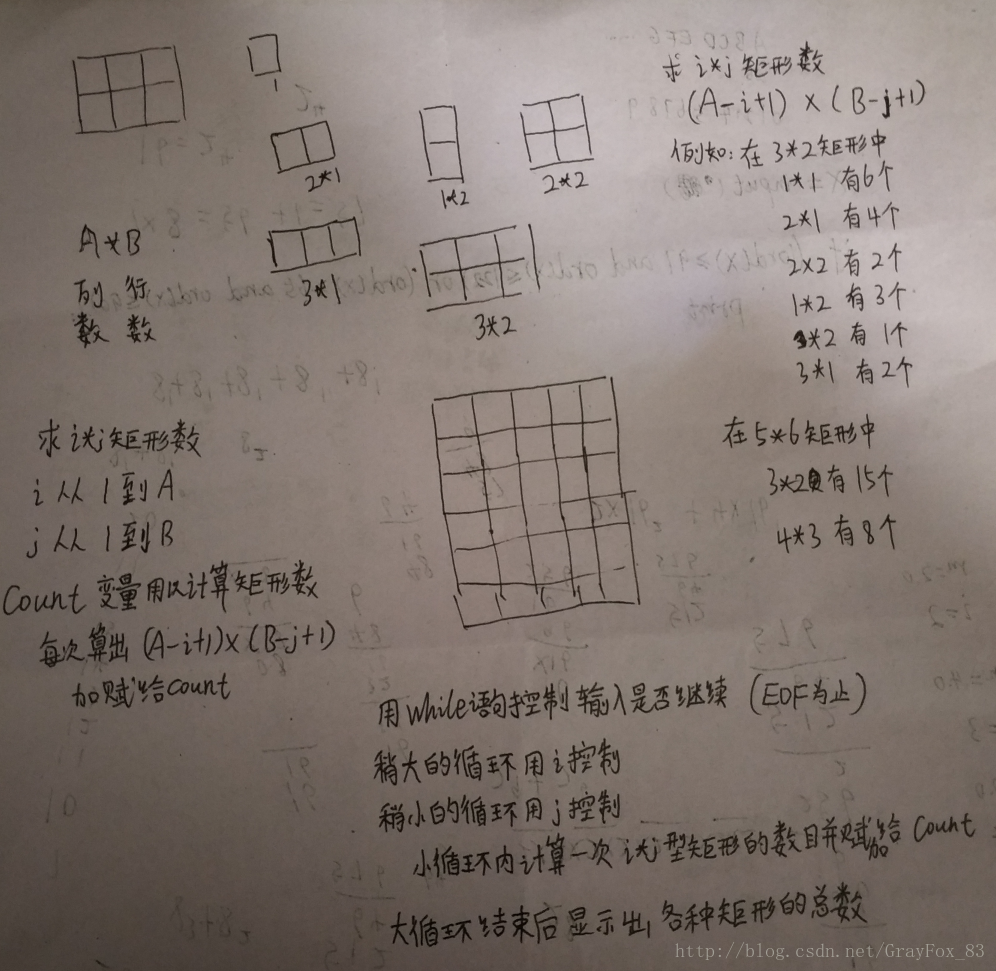 1
2*1
1*2
2*2
3*1
3*2
A*B
列 行
数 数
求 i*j 矩形数
(A-i+1) × (B-j+1)
例如: 在 3*2 矩形中
1*1 有6个
2*1 有4个
2×2 有2个
1*2 有3个
3*2 有1个
3*1 有2个
求 i*j 矩形数
i 从 1 到 A
j 从 1 到 B
Count 变量用以计算矩形数
每次算出 (A-i+1)×(B-j+1)
加赋给count
在 5*6 矩形中
3*2 有 15个
4*3 有 8个
用while语句控制输入是否继续 (EOF为止)
稍大的循环用 i 控制
稍小的循环用 j 控制
小循环内计算一次 i*j 型矩形的数目并加赋给 Count
大循环结束后显示出各种矩形的总数
http://blog.csdn.net/GrayFox_83